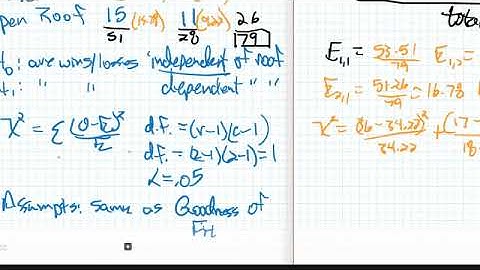 pen Roof 15 (15.78) 11 (9.22) 26
51 28 79
Ho: are wins/losses independent of roof
H1: " " dependent " "
χ² = Σ (O-E)²/E d.f. = (r-1)(c-1)
d.f. = (2-1)(2-1) = 1
α = .05
Assumpts: same as Goodness of
Fit
total
E1,1 = 53·51/79 E1,2 =
E2,1 = 51·26/79 = 16.78
χ² = (36-34.22)²/34.22 + (17-
18.